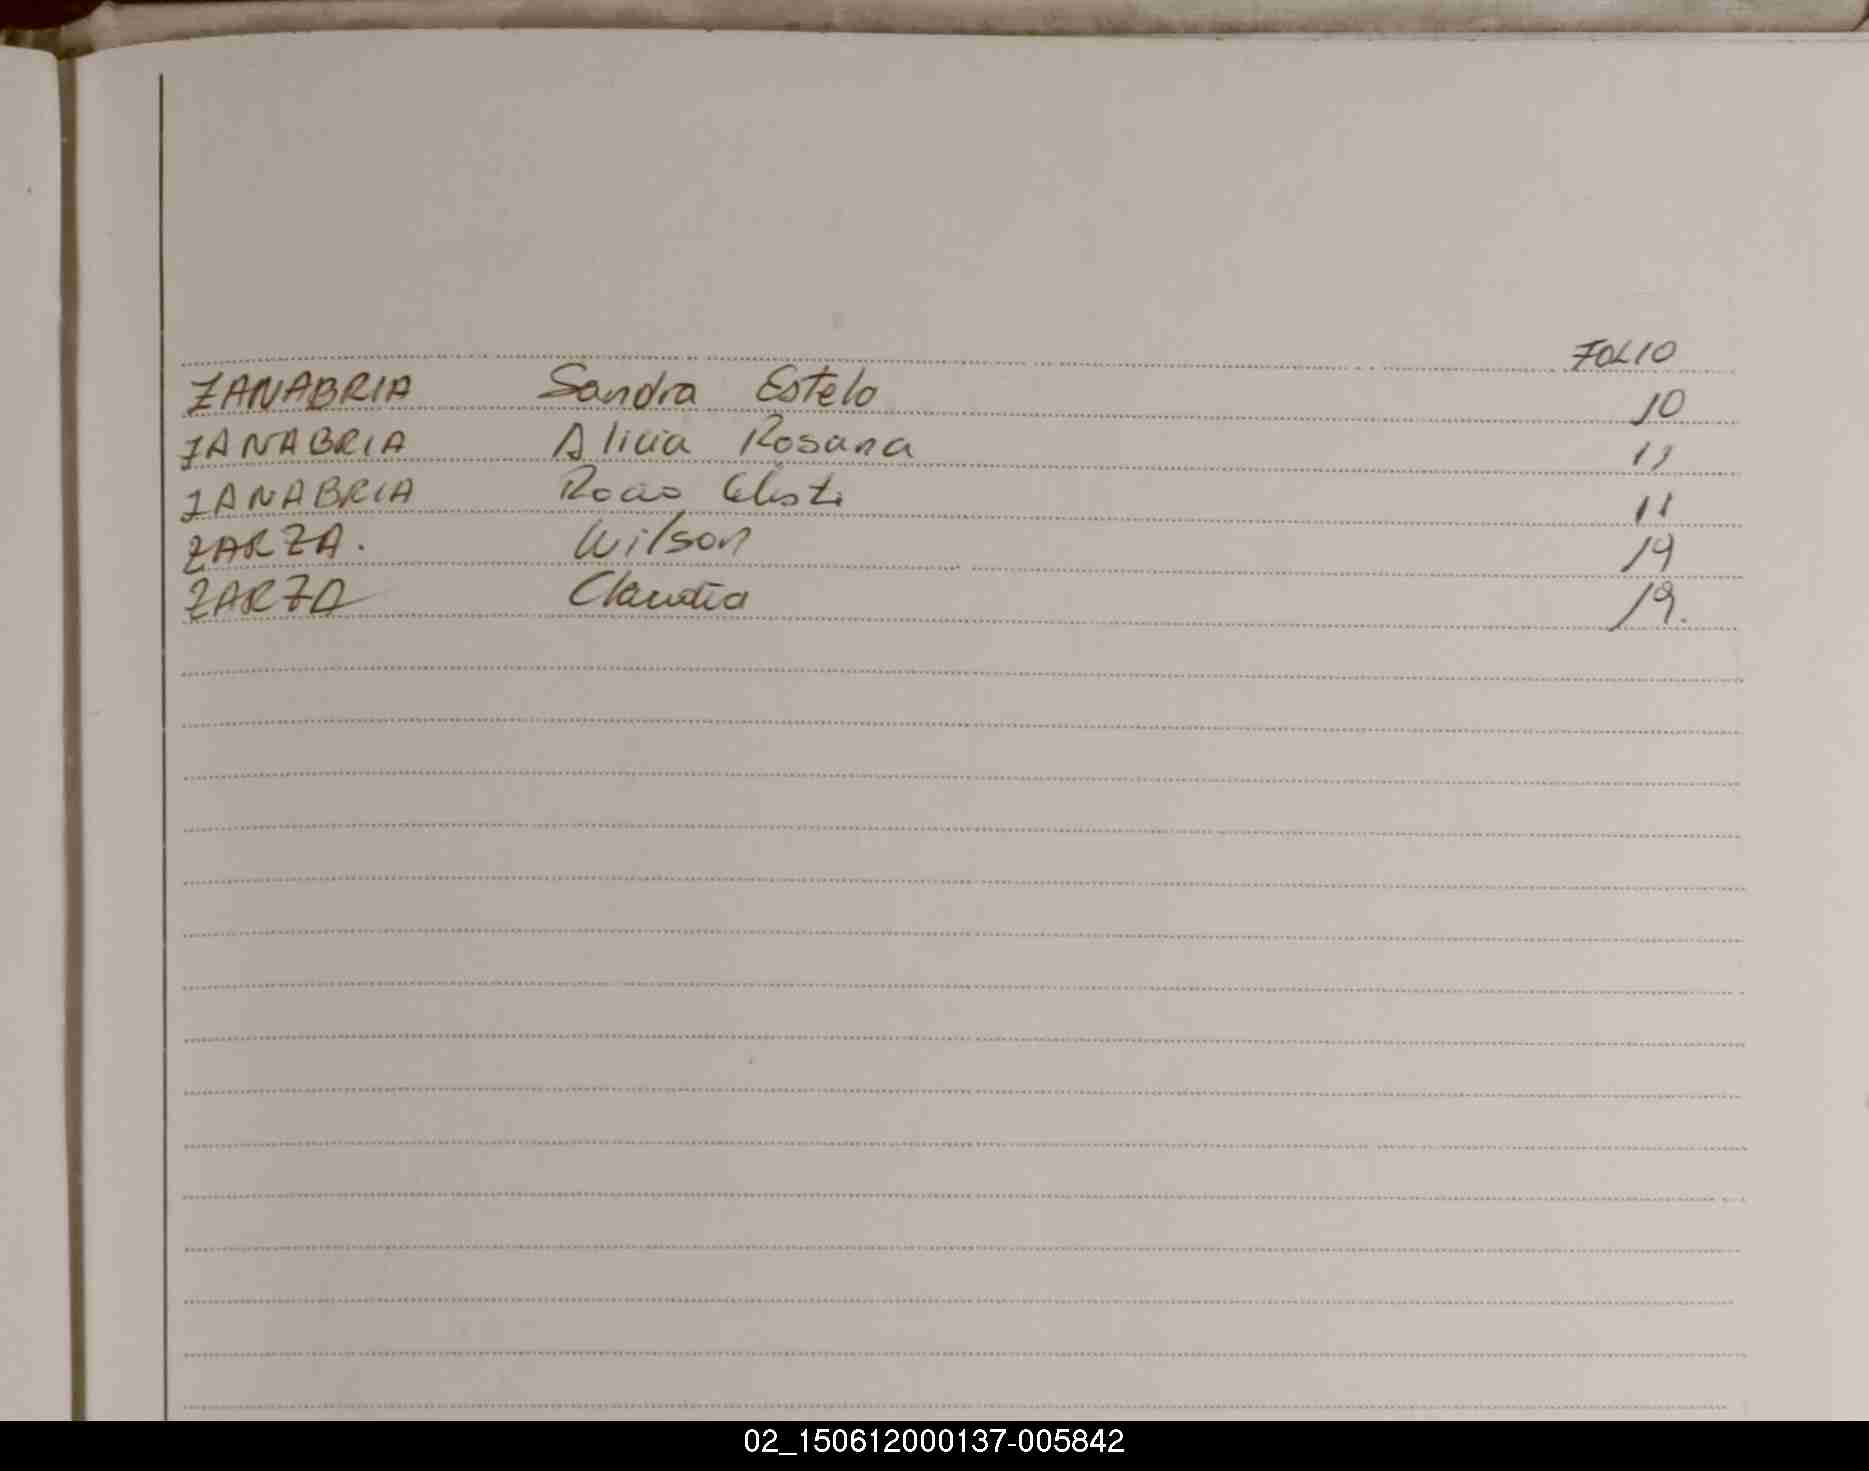 FOLIO
ZANABRIA Sandra Estela 10
ZANABRIA Alicia Rosana 11
ZANABRIA Rocio 11
ZARZA. Wilson 19
ZARZA Claudia 19.
02_150612000137-005842